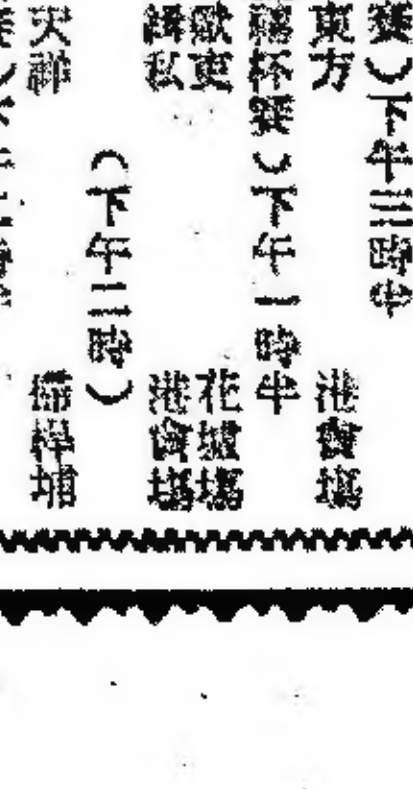 賽）下午三時半
東方 港會場
杯賽）下午一時半
歐 花墟場
緝私 港會場
（下午三時）
天祥 掃桿埔